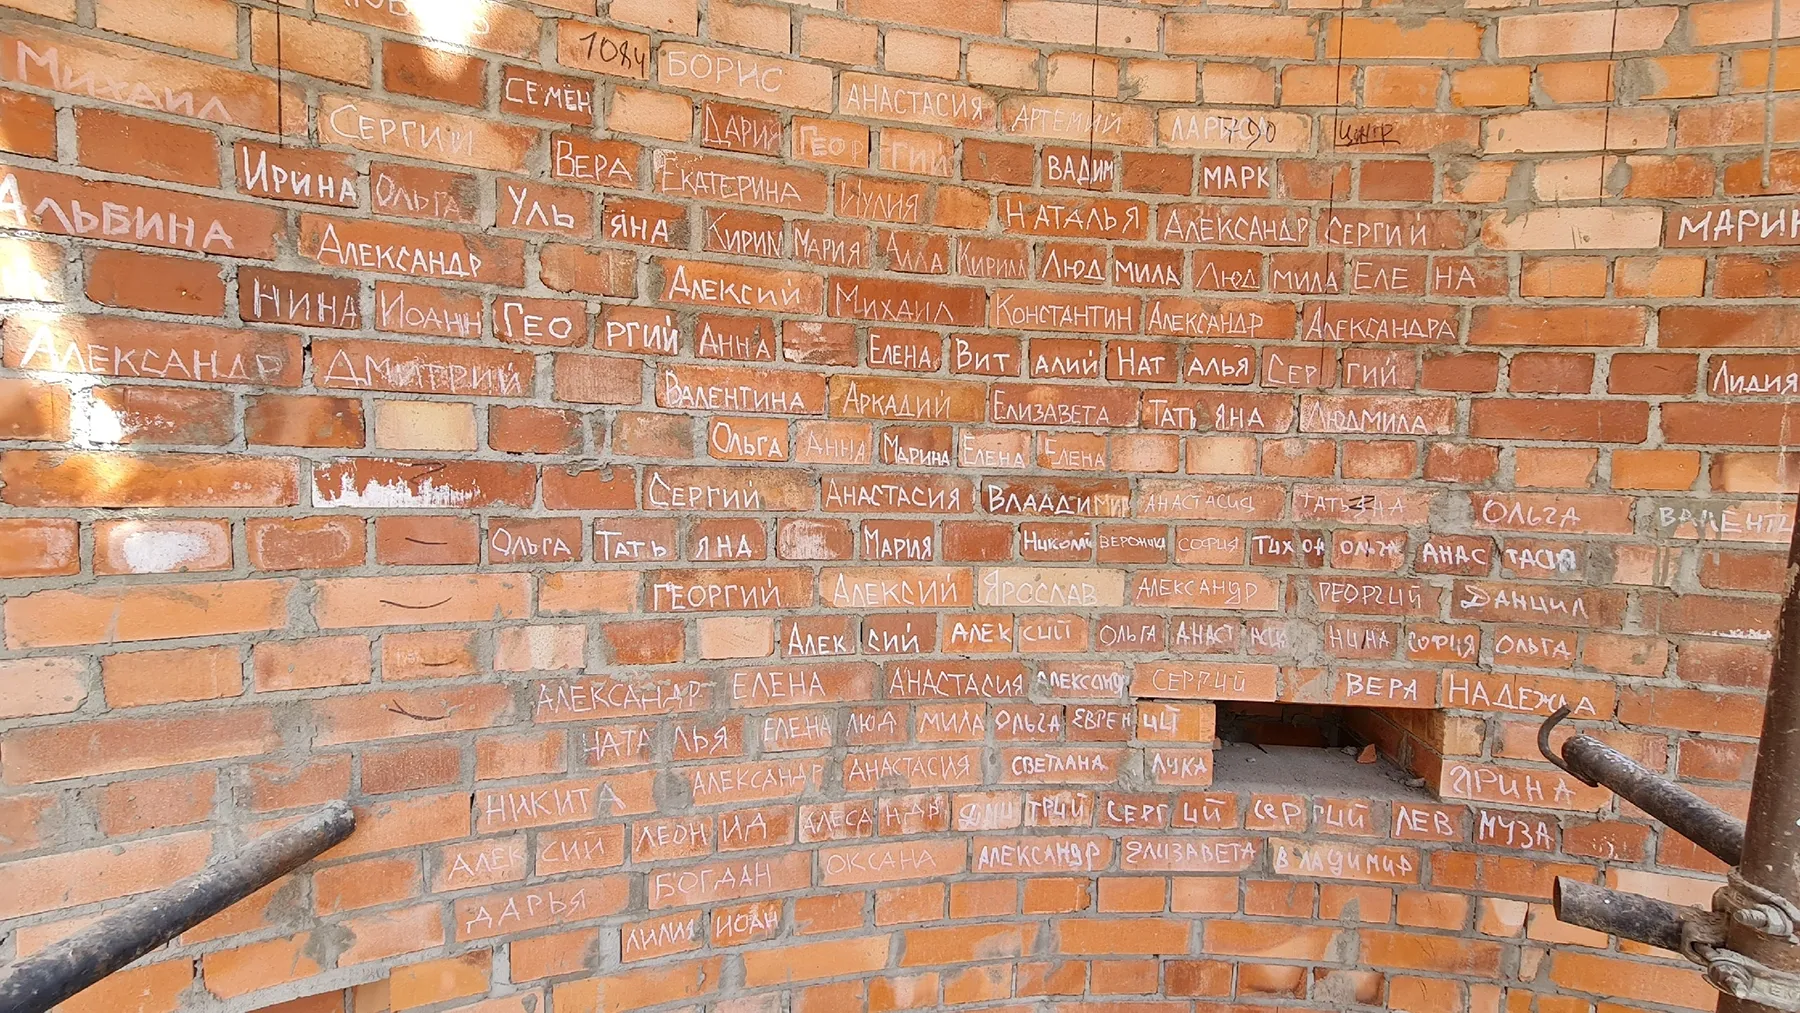 1084 БОРИС
МИХАИЛ СЕМЁН АНАСТАСИЯ АРТЕМИЙ 790 ЦЕНТР
СЕРГИЙ ДАРИЯ ГЕОРГИЙ
ИРИНА ОЛЬГА ВЕРА ЕКАТЕРИНА ИУЛИЯ ВАДИМ МАРК
АЛЬБИНА УЛЬЯНА НАТАЛЬЯ АЛЕКСАНДР СЕРГИЙ
АЛЕКСАНДР КИРИЛ МАРИЯ АЛЛА КИРИЛЛ ЛЮДМИЛА ЛЮДМИЛА ЕЛЕНА
НИНА ИОАНН АЛЕКСИЙ МИХАИЛ КОНСТАНТИН АЛЕКСАНДР АЛЕКСАНДРА
АЛЕКСАНДР ГЕОРГИЙ АННА ЕЛЕНА ВИТАЛИЙ НАТАЛЬЯ СЕРГИЙ ЛИДИЯ
ДМИТРИЙ ВАЛЕНТИНА АРКАДИЙ ЕЛИЗАВЕТА ТАТЬЯНА ЛЮДМИЛА
ОЛЬГА АННА МАРИНА ЕЛЕНА ЕЛЕНА
СЕРГИЙ АНАСТАСИЯ ВЛААДИМИР АНАСТАСИЯ ТАТЬЯНА ОЛЬГА
ОЛЬГА ТАТЬЯНА МАРИЯ ВЕРОНИКА СОФИЯ ТИХОН ОЛЬГА АНАСТАСИЯ
ГЕОРГИЙ АЛЕКСИЙ ЯРОСЛАВ АЛЕКСАНДР ГЕОРГИЙ ДАНИИЛ
АЛЕКСИЙ АЛЕКСИЙ ОЛЬГА АНАСТАСИЯ НИНА СОФИЯ ОЛЬГА
АЛЕКСАНДР ЕЛЕНА АНАСТАСИЯ АЛЕКСАНДР СЕРГИЙ ВЕРА НАДЕЖДА
НАТАЛЬЯ ЕЛЕНА ЛЮДМИЛА ОЛЬГА
АЛЕКСАНДР АНАСТАСИЯ СВЕТЛАНА ЛУКА ИРИНА
НИКИТА АЛЕСАНДЫ ДМИТРИЙ СЕРГИЙ СЕРГИЙ ЛЕВ МУЗА
АЛЕКСИЙ ЛЕОНИД ОКСАНА АЛЕКСАНДР ЕЛИЗАВЕТА ВЛАДИМИР
ДАРЬЯ БОГДАН
ЛИЛИЯ ИОАН